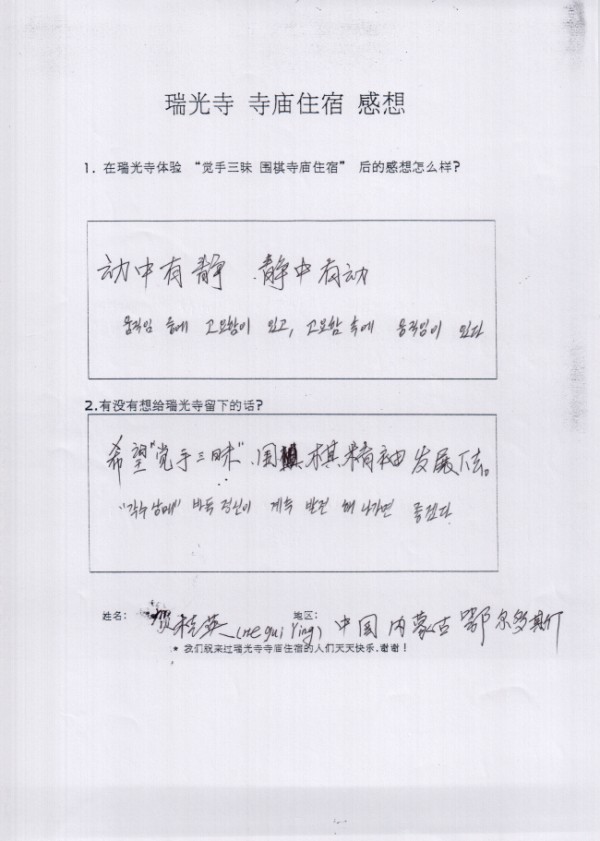 瑞光寺 寺庙住宿 感想
1. 在瑞光寺体验 “觉手三昧 围棋寺庙住宿” 后的感想怎么样?
动中有静 静中有动
움직임 중에 고요함이 있고, 고요함 속에 움직임이 있다
2.有没有想给瑞光寺留下的话?
希望"觉手三昧" 围棋精神发展下去。
"각수삼매" 바둑 정신이 계속 발전해 나가면 좋겠다
姓名: 贺桂英 (He gui Ying) 地区: 中国 内蒙古 鄂尔多斯
* 我们祝来过瑞光寺寺庙住宿的人们天天快乐.谢谢!